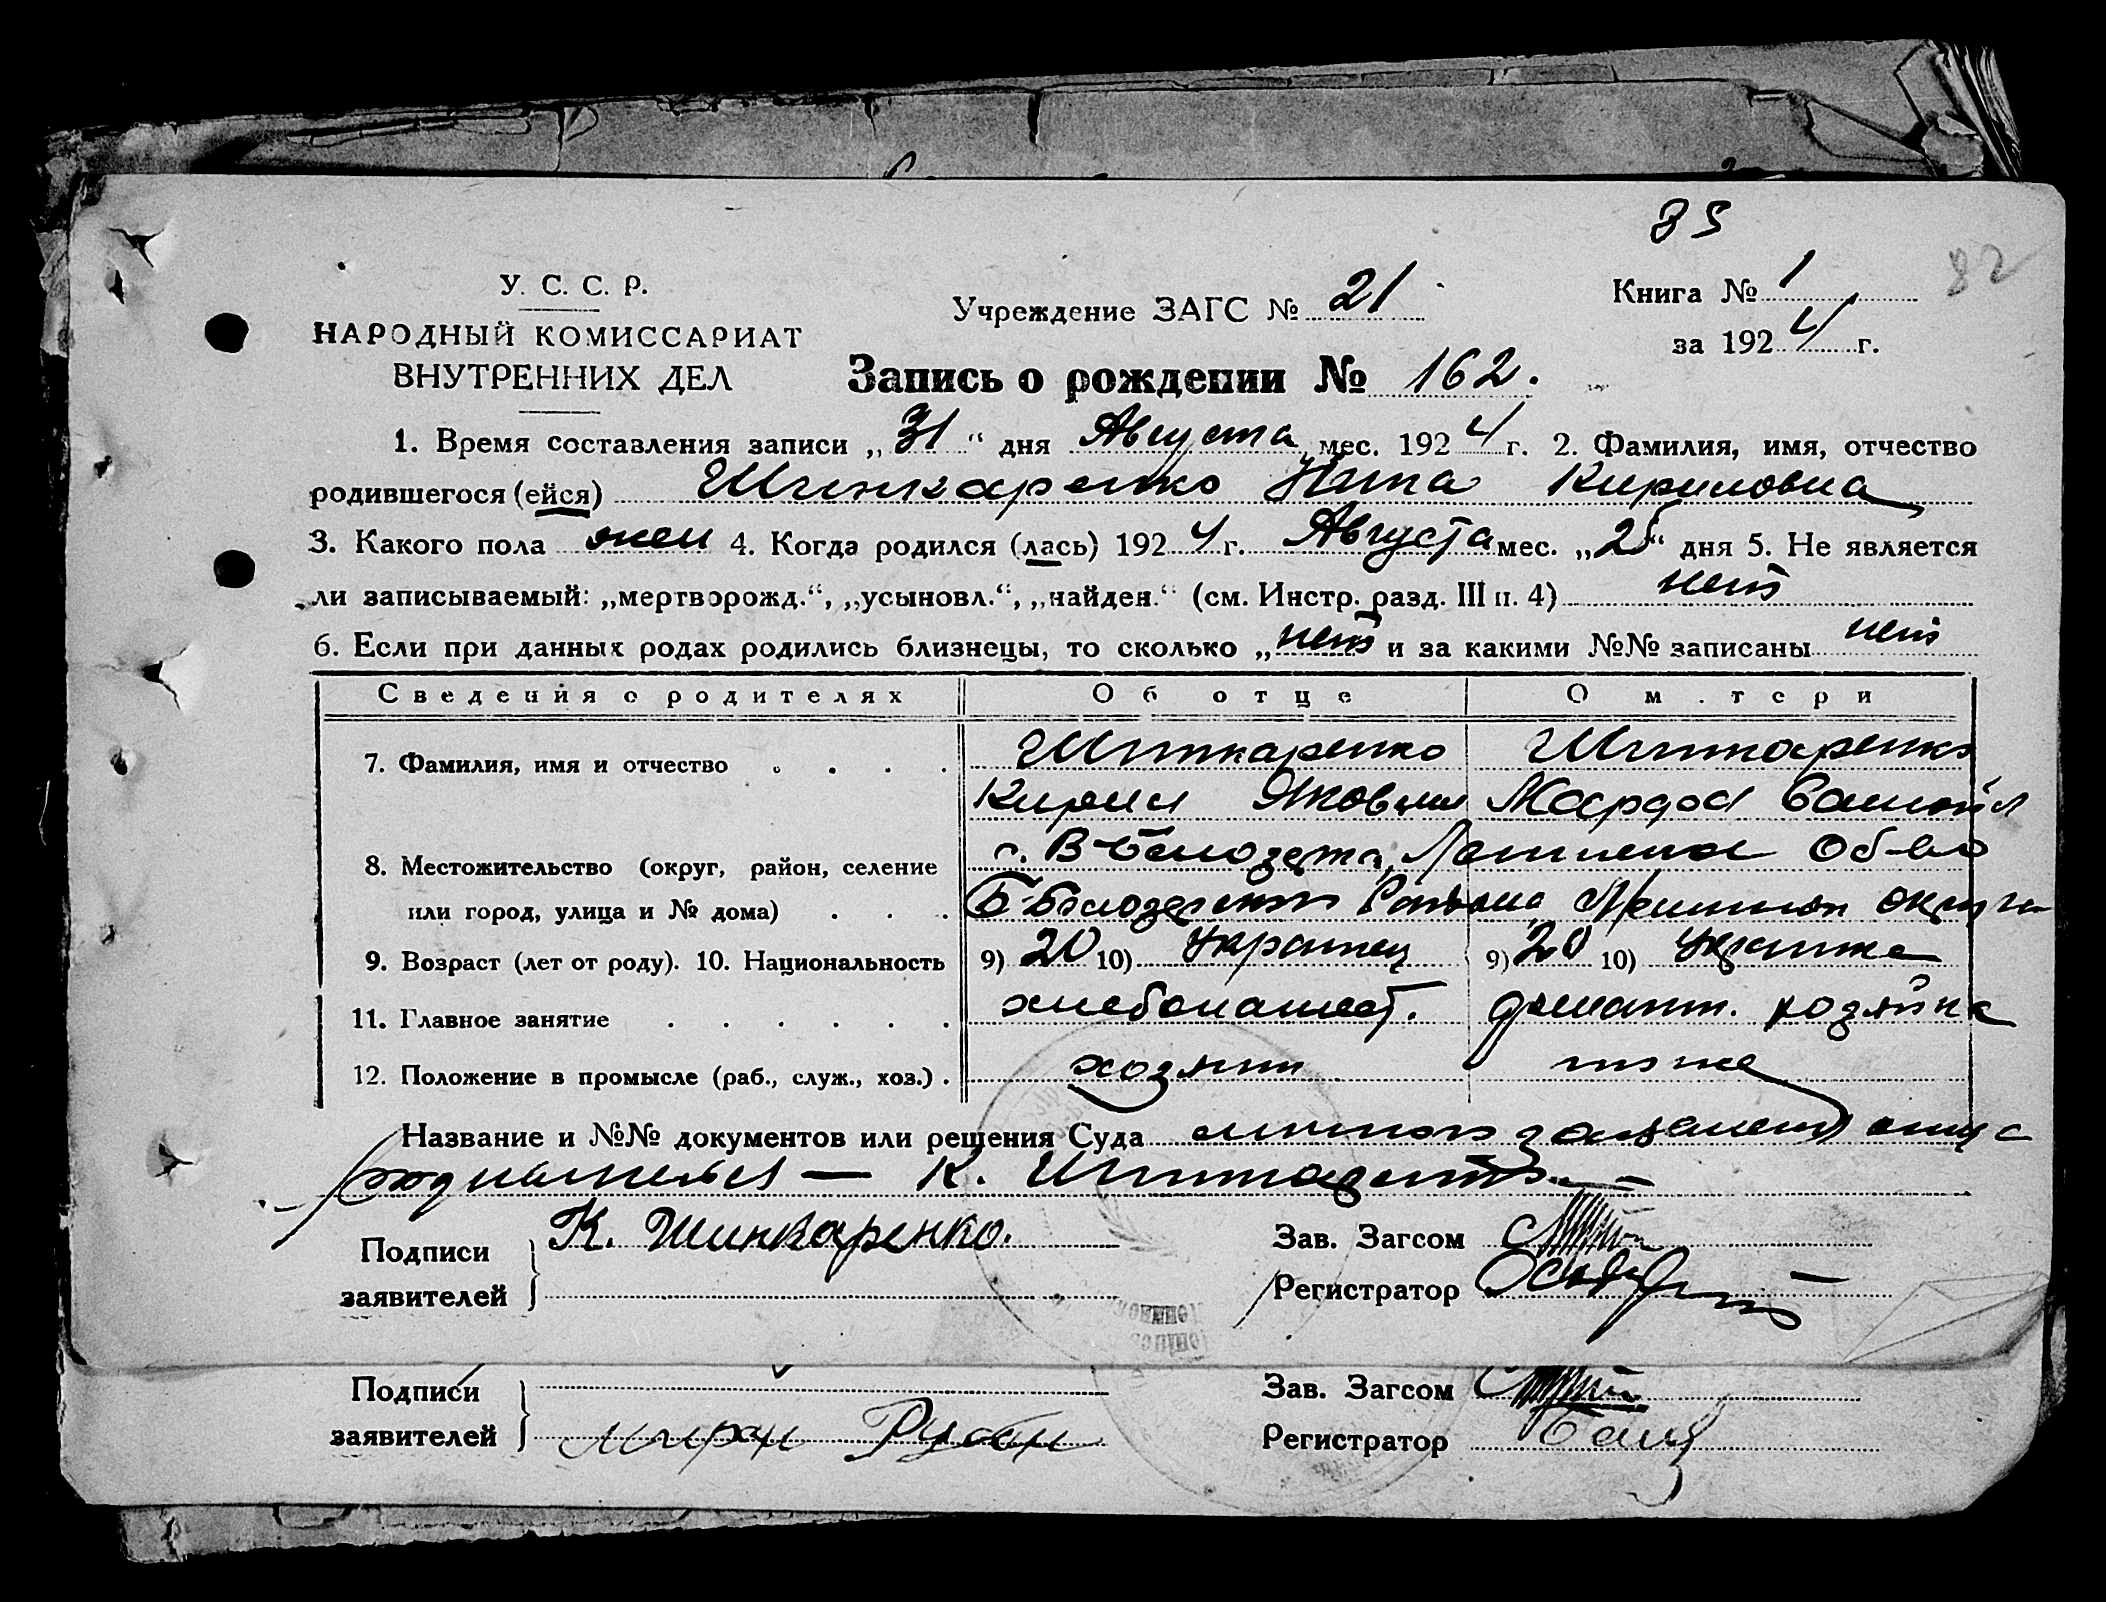 83
82
У. С. С. Р.
НАРОДНЫЙ КОМИССАРИАТ
ВНУТРЕННИХ ДЕЛ
Учреждение ЗАГС № 21
Книга № 1
за 1924 г.
Запись о рождении № 162.
1. Время составления записи „31“ дня Августа мес. 1924 г. 2. Фамилия, имя, отчество
родившегося (ейся) Шинкаренко Нина Кириловна
3. Какого пола жен 4. Когда родился (лась) 1924 г. Августа мес. „25“ дня 5. Не является
ли записываемый: „мертворожд.“, „усыновл.“, „найден.“ (см. Инстр. разд. III п. 4) нет
6. Если при данных родах родились близнецы, то сколько „нет и за какими №№ записаны нет
Сведения о родителях Об отце О м.тери
7. Фамилия, имя и отчество Шинкаренко Шинкаренко
Кирил Яковлев Марфа Самойл
8. Местожительство (округ, район, селение с. В-Белозерка,
или город, улица и № дома) Б-Белозерского Района округа
9. Возраст (лет от роду). 10. Национальность 9) 20 10) Украинец 9) 20 10) Украинка
11. Главное занятие хлебопашест. домашн. хозяйка
12. Положение в промысле (раб., служ., хоз.) хозяин тоже
Название и №№ документов или решения Суда личное заявление отца
К. Шинкаренко
Подписи заявителей К. Шинкаренко.
Зав. Загсом
Регистратор
Подписи
заявителей
Зав. Загсом
Регистратор